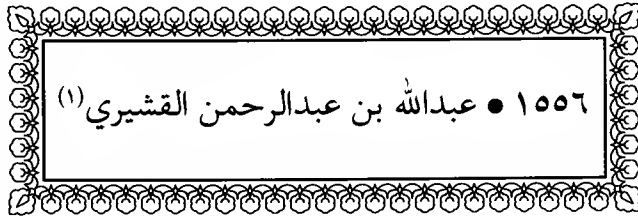 ١٥٥٦ ● عبدالله بن عبدالرحمن القشيري(١)